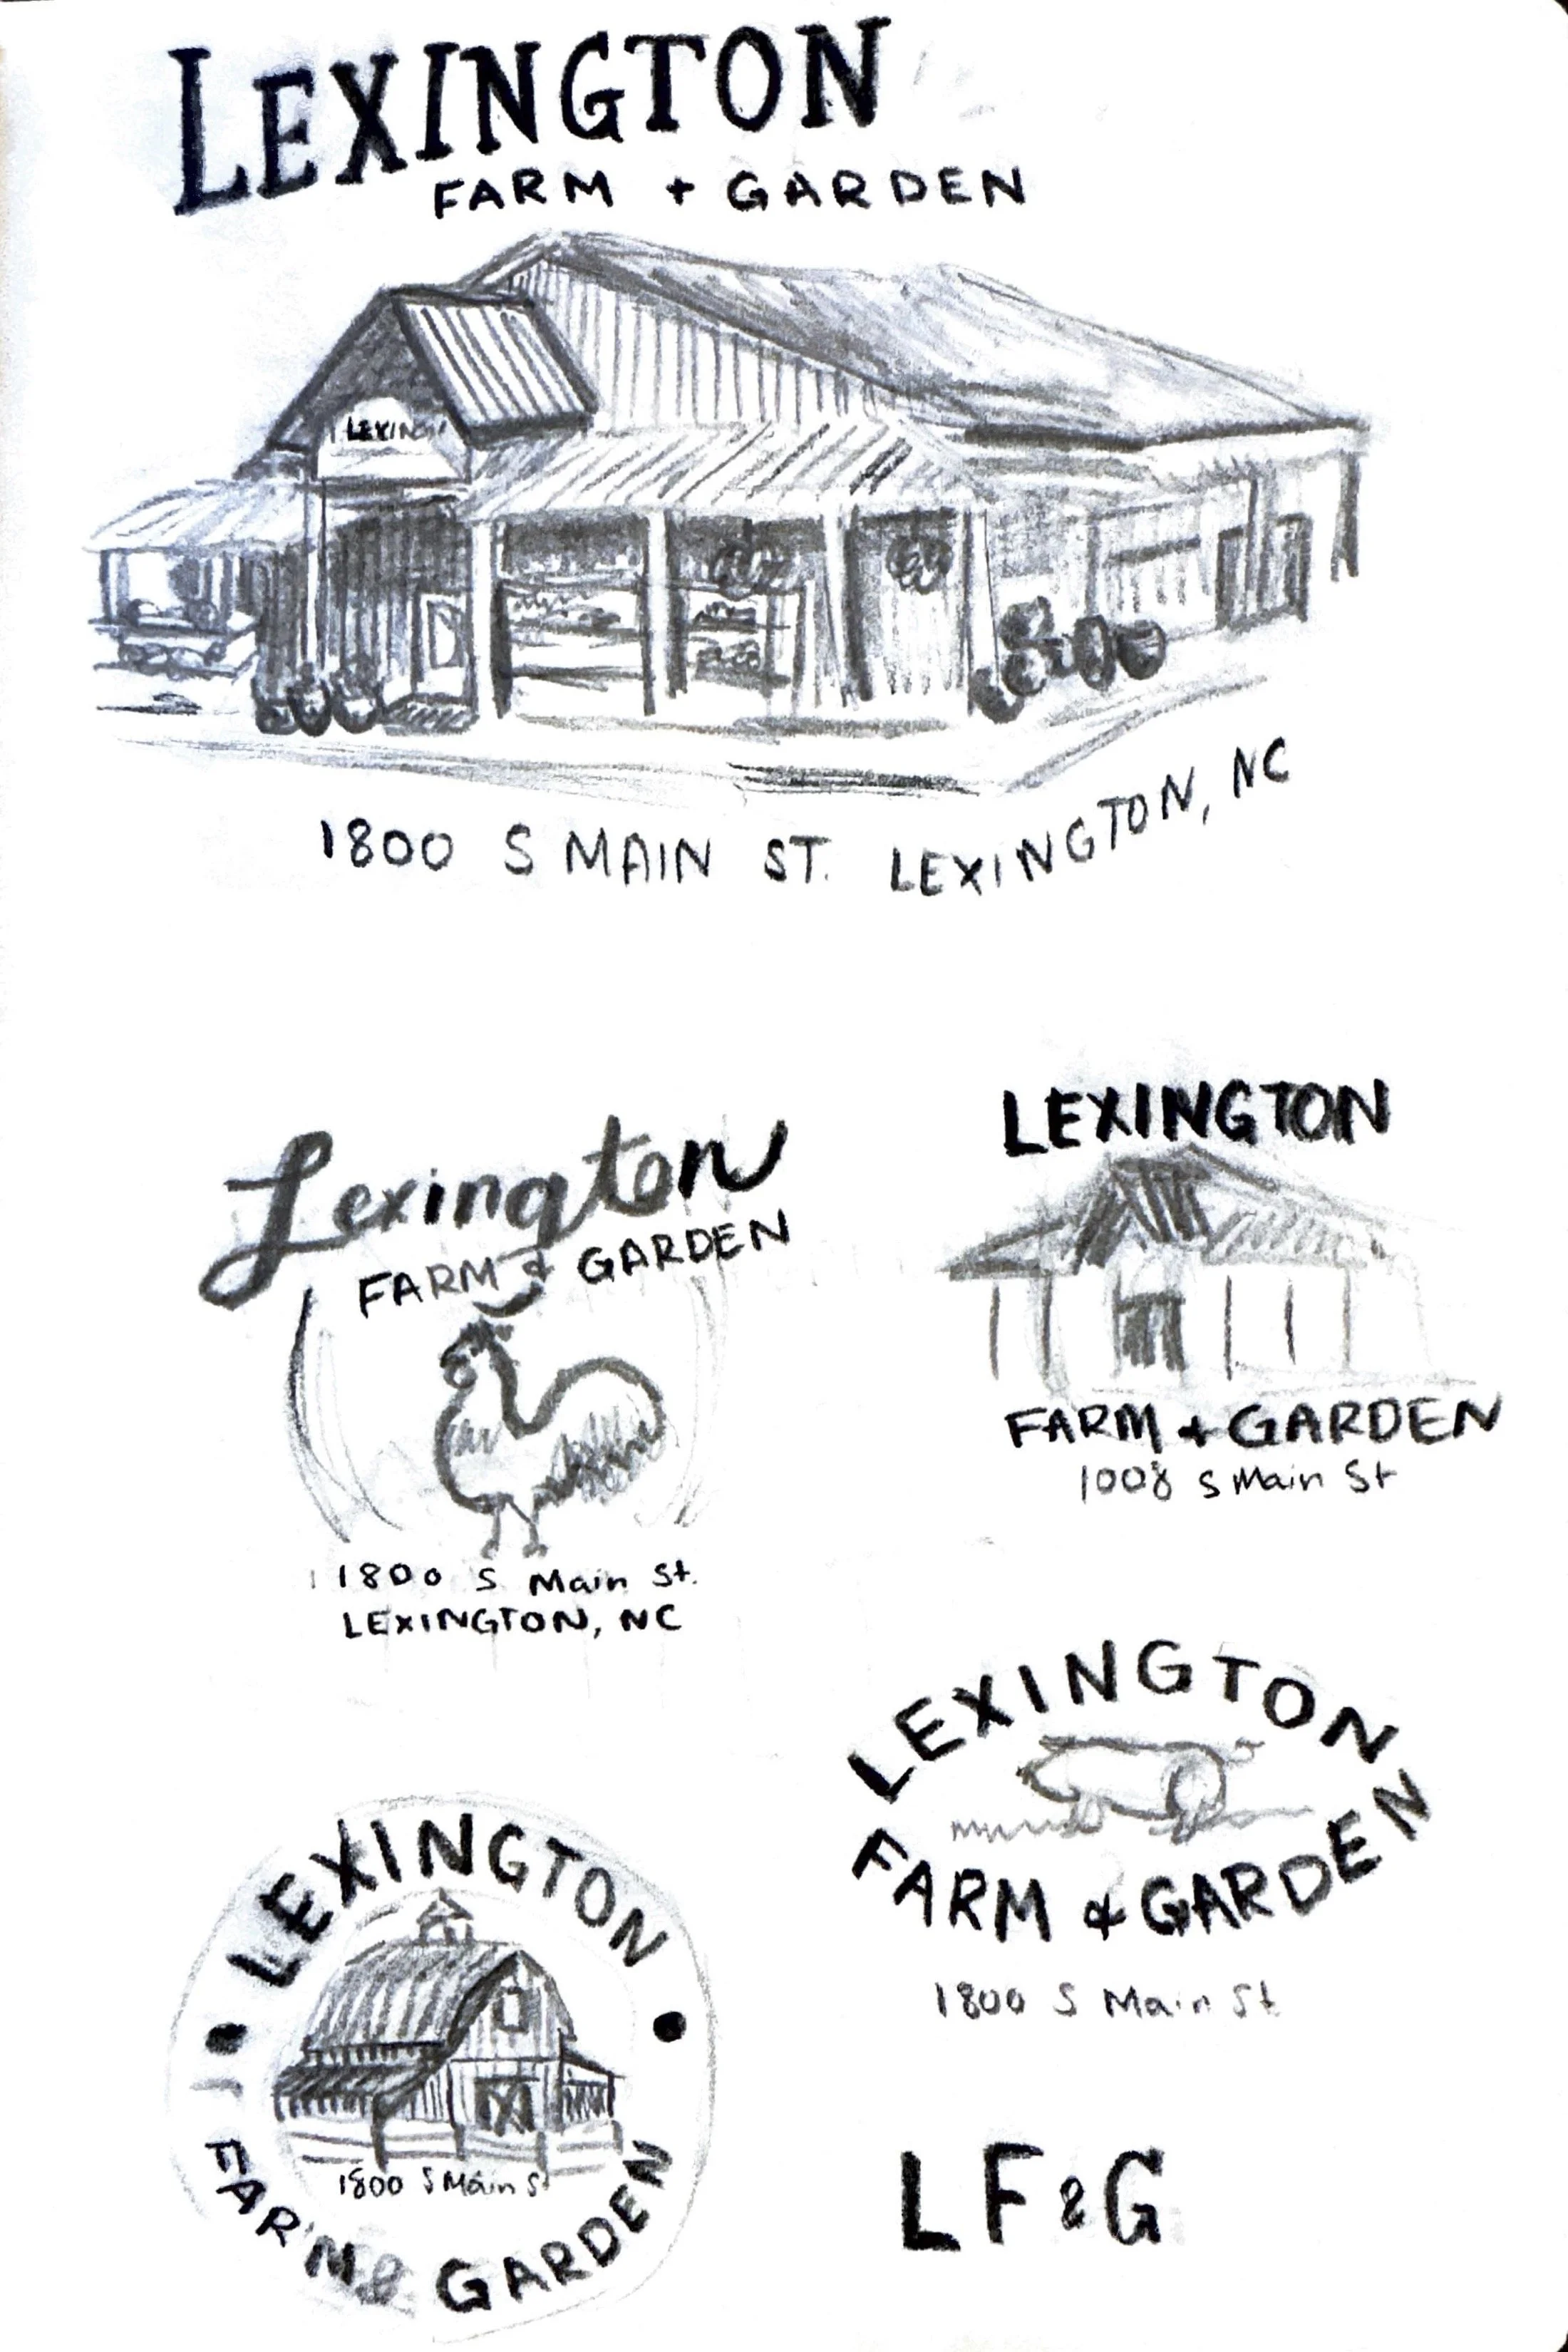 LEXINGTON
FARM + GARDEN
LEXING
1800 S MAIN ST. LEXINGTON, NC
Lexington
FARM & GARDEN
1800 S Main St.
LEXINGTON, NC
LEXINGTON
FARM + GARDEN
1008 S Main St
LEXINGTON
FARM & GARDEN
1800 S Main St
LEXINGTON
1800 S Main St
FARM & GARDEN
LF&G